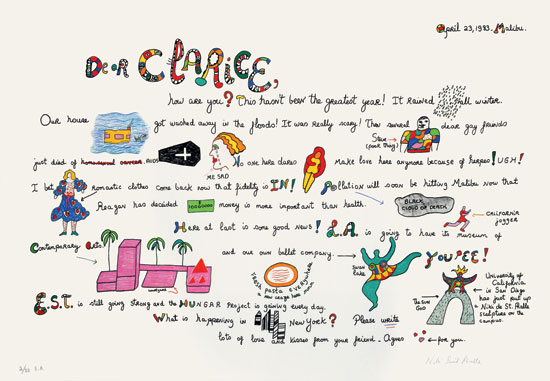 April 23, 1983. Malibu.
Dear CLARICE,
how are you? This hasn't been the greatest year! It rained all winter.
Our house got washed away in the floods! It was really scary! Then several dear gay friends
Steve (poor thing)
just died of homosexual cancer. AIDS No one here dares make love here anymore because of herpes! UGH!
ME SAD
I bet romantic clothes come back now that fidelity is IN! Pollution will soon be hitting Malibu now that
BLACK CLOUD OF DEATH
Reagan has decided money is more important than health.
CALIFORNIA jogger
Here at last is some good news! L.A. is going to have its museum of
Contemporary Arts. and our own ballet company. YOUPEE!
SWAN LAKE
FRESH PASTA EVERYWHERE
University of California in San Diego has just put up a Niki de St. Phalle sculpture on the campus.
The Sun God
E.S.T. is still going strong and the HUNGAR Project is gaining every day.
What is happening in New York? Please write
lots of love and kisses from your friend - Agnes for you.
E.A.
Niki de Saint Phalle